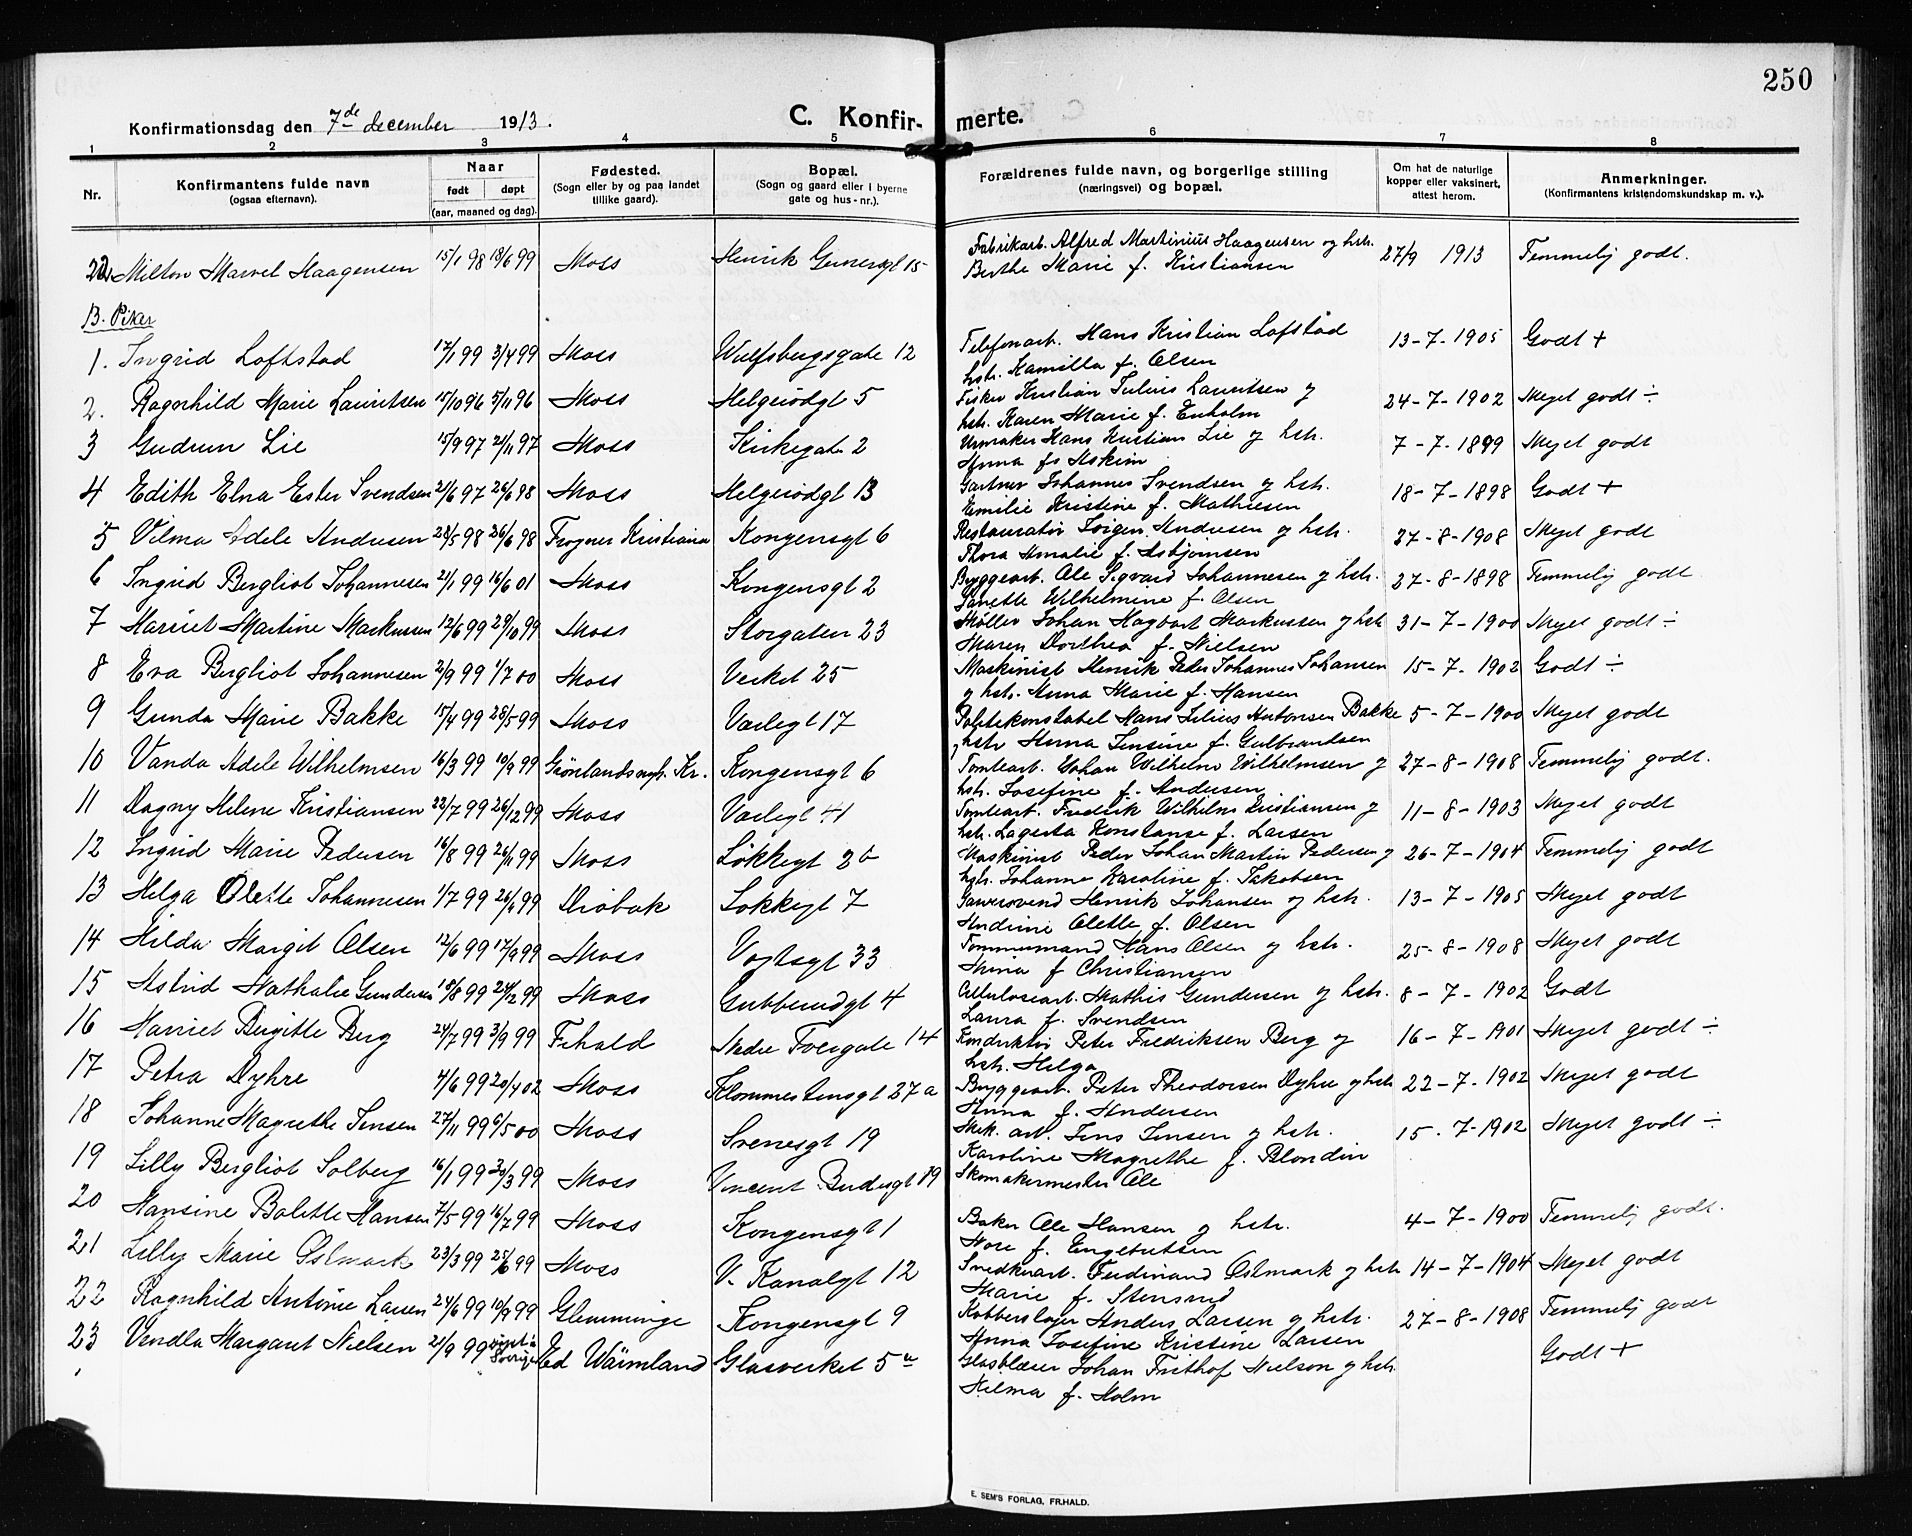 250
Konfirmationsdag den 7de december 1913.
C. Konfirmerte.
1 2 3 4 5 6 7 8
Nr.
Konfirmantens fulde navn
(ogsaa efternavn).
Naar
født døpt
(aar, maaned og dag).
Fødested.
(Sogn eller by og paa landet
tillike gaard).
Bopæl.
(Sogn og gaard eller i byerne
gate og hus-nr.).
Forældrenes fulde navn, og borgerlige stilling
(næringsvei) og bopæl.
Om hat de naturlige
kopper eller vaksinert,
attest herom.
Anmerkninger.
(Konfirmantens kristendomskundskap m. v.).
22 Milton Marvel Haagensen 15/1 98 18/6 99 Moss Henrik Gernersgt 15 Fabrikarb. Alfred Martinius Haagensen og hstr. 27/9 1913 Temmelig godt.
Berthe Marie f. Kristiansen
B. Piker
1. Ingrid Loftstad 17/1 99 3/4 99 Moss Wulfsbergsgate 12 Telefonarb. Hans Kristian Lofstad 13-7-1905 Godt +
hstr. Kamilla f. Olsen
2. Ragnhild Marie Lauritsen 15/10 96 5/11 96 Moss Helgerødgt 5 Fisker Kristian Julius Lauritsen og 24-7-1902 Meget godt ÷
hstr. Karen Marie f. Enholm
3 Gudrun Lie 15/9 97 21/11 97 Moss Kirkegate 2 Urmaker Hans Kristian Lie og hstr. 7-7-1899 Meget godt
Anna f. Askim
4 Edith Elna Ester Svendsen 21/6 97 26/6 98 Moss Helgerødgt 13 Gartner Johannes Svendsen og hstr. 18-7-1898 Godt +
Emilie Kristine f. Mathiesen
5 Vilma Adele Andresen 28/5 98 26/6 98 Frogner Kristiania Kongensgt 6 Restauratør Jørgen Andresen og hstr. 27-8-1908 Meget godt
Thora Amalie f. Asbjørnsen
6 Ingrid Bergliot Johannesen 21/1 99 16/6 01 Moss Kongensgt 2 Bryggearb. Ole Sigvard Johannesen og hstr. 27-8-1898 Temmelig godt
Janette Wilhelmine f. Olsen
7 Harriet Martine Markussen 12/6 99 29/10 99 Moss Storgaten 23 Møller Johan Hagbart Markussen og hstr. 31-7-1900 Meget godt ÷
Maren Dorthea f. Nielsen
8 Eva Bergliot Johannesen 2/9 99 1/7 00 Moss Verket 25 Maskinist Henrik Peder Johannes Johansen 15-7-1902 Godt ÷
og hstr. Anna Marie f. Hansen
9 Gunda Marie Bakke 15/4 99 28/5 99 Moss Varlegt 17 Politikonstabel Hans Julius Antonsen Bakke 5-7-1900 Meget godt
hstr Anna Jensine f. Gulbrandsen
10 Vanda Adele Wilhelmsen 16/3 99 10/9 99 Grønlandsmgh. Kr. Kongensgt 6 Tomtearb. Johan Wilhelm Wilhelmsen og 27-8-1908 Temmelig godt.
hstr. Josefine f. Andersen
11 Dagny Helene Kristiansen 22/7 99 26/12 99 Moss Varlegt 41 Tomtearb. Fredrik Wilhelm Kristiansen og 11-8-1903 Meget godt
hstr. Lagerta Konstanse f. Larsen
12 Ingrid Marie Pedersen 16/8 99 26/11 99 Moss Løkkegt 2b Maskinist Peder Johan Martin Pedersen og 26-7-1904 Temmelig godt
hstr. Johanne Karoline f. Jakobsen
13 Helga Olette Johannesen 1/7 99 26/1 99 Drøbak Løkkegt 7 Garversvend Henrik Johansen og hstr. 13-7-1905 Meget godt
Andrine Olette f. Olsen
14 Hilda Margit Olsen 12/6 99 17/9 99 Moss Vogtsgt 33 Tømmermand Hans Olsen og hstr. 25-8-1908 Meget godt
Mina f Christiansen
15 Astrid Nathalie Gundersen 18/8 99 24/12 99 Moss Gubberudgt 4 Cellulosearb. Mathis Gundersen og hstr. 8-7-1902 Godt
Laura f. Svendsen
16 Harriet Birgitte Berg 24/7 99 3/9 99 Frhald Nedre Torvgate 14 Konduktør Peter Fredriksen Berg og 16-7-1901 Meget godt ÷
hstr. Helga
17 Petra Dyhre 4/6 99 20/4 02 Moss Klommestensgt 27a Bryggearb. Peter Theodorsen Dyhre og hstr 22-7-1902 Meget godt
Anna f. Andersen
18 Johanne Magrethe Jensen 27/11 99 6/5 00 Moss Svenesgt 19 Mek. arb. Jens Jensen og hstr. 15-7-1902 Meget godt ÷
Karoline Magrethe f. Blondin
19 Lilly Bergliot Solberg 16/1 99 30/3 99 Moss Vincent Budesgt 19 Skomakermester Ole
20 Hansine Bolette Hansen 7/5 99 16/7 99 Moss Kongensgt 1 Baker Ole Hansen og hstr. 4-7-1900 Temmelig godt.
Nore f. Engebretsen
21 Lilly Marie Østmark 23/3 99 25/6 99 Moss V. Kanalgt 12 Snedkerarb. Ferdinand Østmark og hstr 14-7-1904 Meget godt
Marie f. Stensrud
22 Ragnhild Antonie Larsen 24/6 99 10/9 99 Glemminge Kongensgt 9 Kobberslager Anders Larsen og hstr. 27-8-1908 Temmelig godt
Anna Josefine Kristine Larsen
23 Vendla Margaret Nielsen 21/9 99 døpt i Sverige Ed Wärmland Glasverket 5 Glasblæser Johan Frithof Nielson og hstr. Godt +
Hilma f. Holm
E. SEM'S FORLAG, FR.HALD.